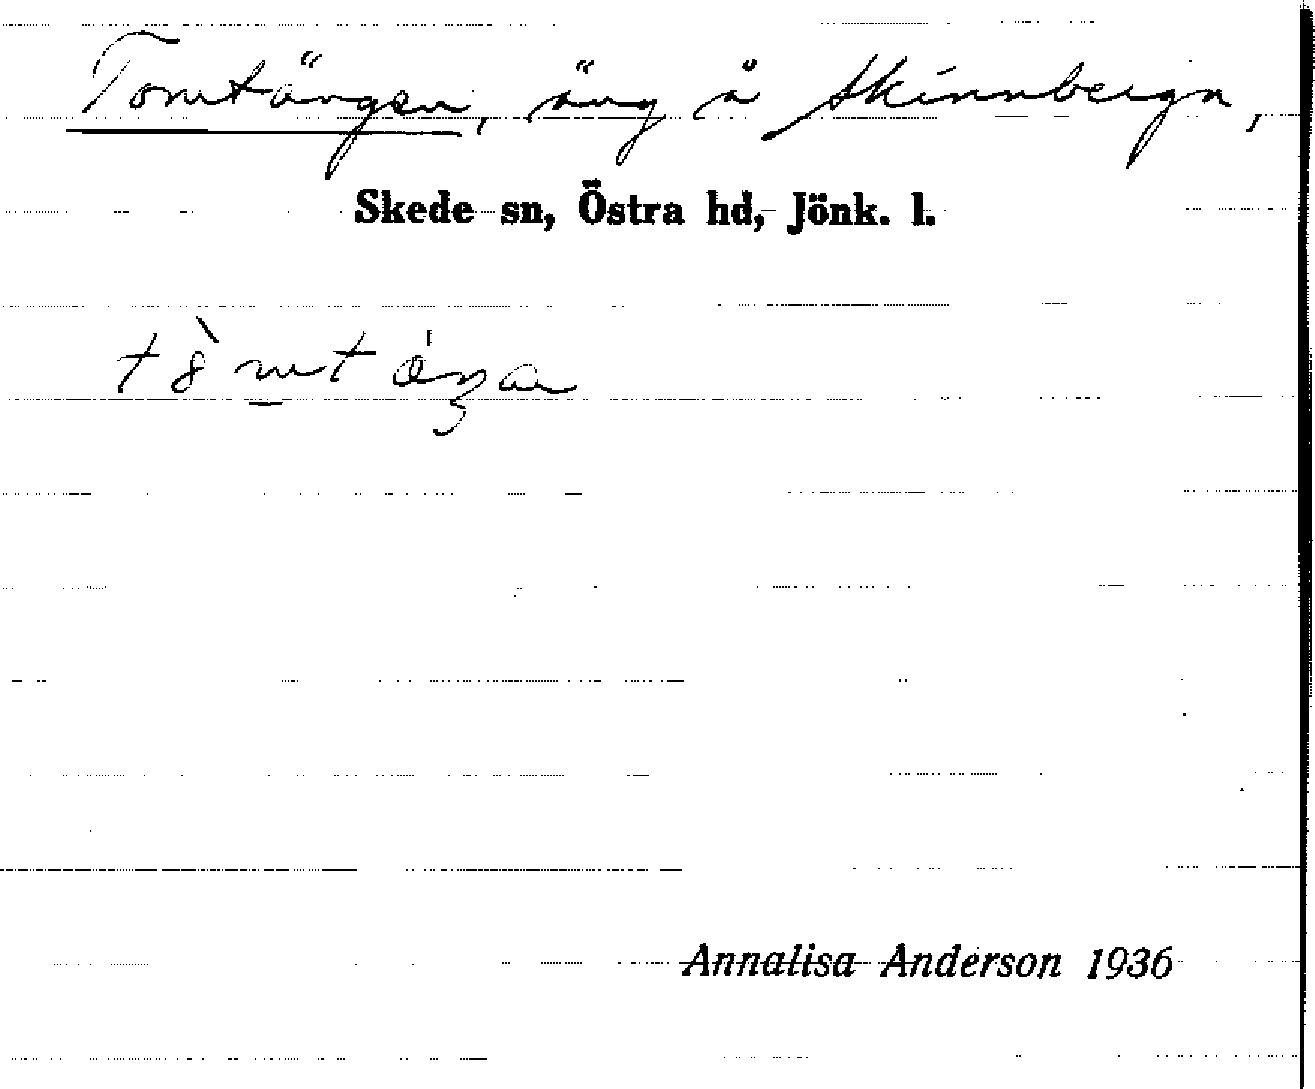 Tomtängen, äng å Skinnberga,
Skede sn, Östra hd, Jönk. l.
Annalisa Anderson 1936